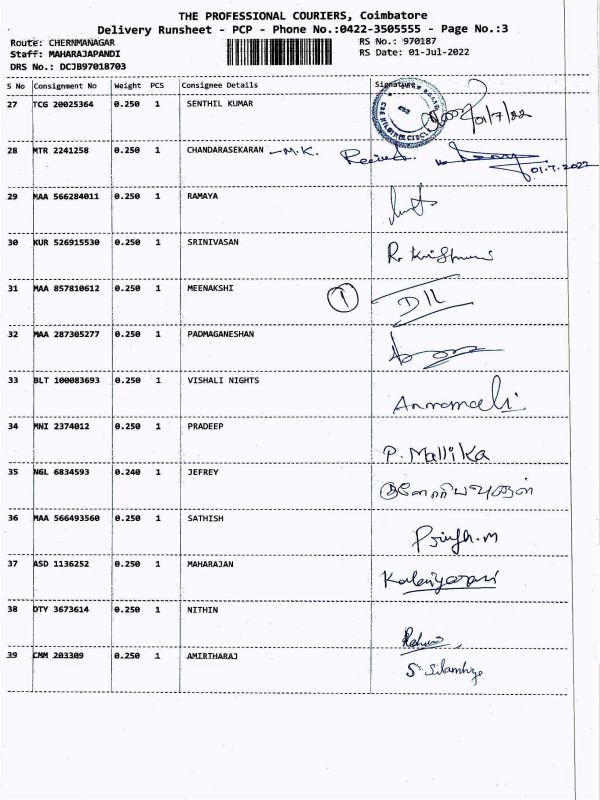 THE PROFESSIONAL COURIERS, Coimbatore
Delivery Runsheet - PCP - Phone No.:0422-3505555 - Page No.:3
Route: CHERNMANAGAR RS No.: 970187
Staff: MAHARAJAPANDI RS Date: 01-Jul-2022
DRS No.: DCJB97018703
S No Consignment No Weight PCS Consignee Details Signature
27 TCG 20025364 0.250 1 SENTHIL KUMAR 01/7/22
28 MTR 2241258 0.250 1 CHANDARASEKARAN -M.K. 01.7.2022
29 MAA 566284011 0.250 1 RAMAYA
30 KUR 526915530 0.250 1 SRINIVASAN
31 MAA 857810612 0.250 1 MEENAKSHI 1
32 MAA 287305277 0.250 1 PADMAGANESHAN
33 BLT 100083693 0.250 1 VISHALI NIGHTS
34 MNI 2374012 0.250 1 PRADEEP P. Mallika
35 NGL 6834593 0.240 1 JEFREY
36 MAA 566493560 0.250 1 SATHISH
37 ASD 1136252 0.250 1 MAHARAJAN
38 DTY 3673614 0.250 1 NITHIN
39 CMM 203309 0.250 1 AMIRTHARAJ